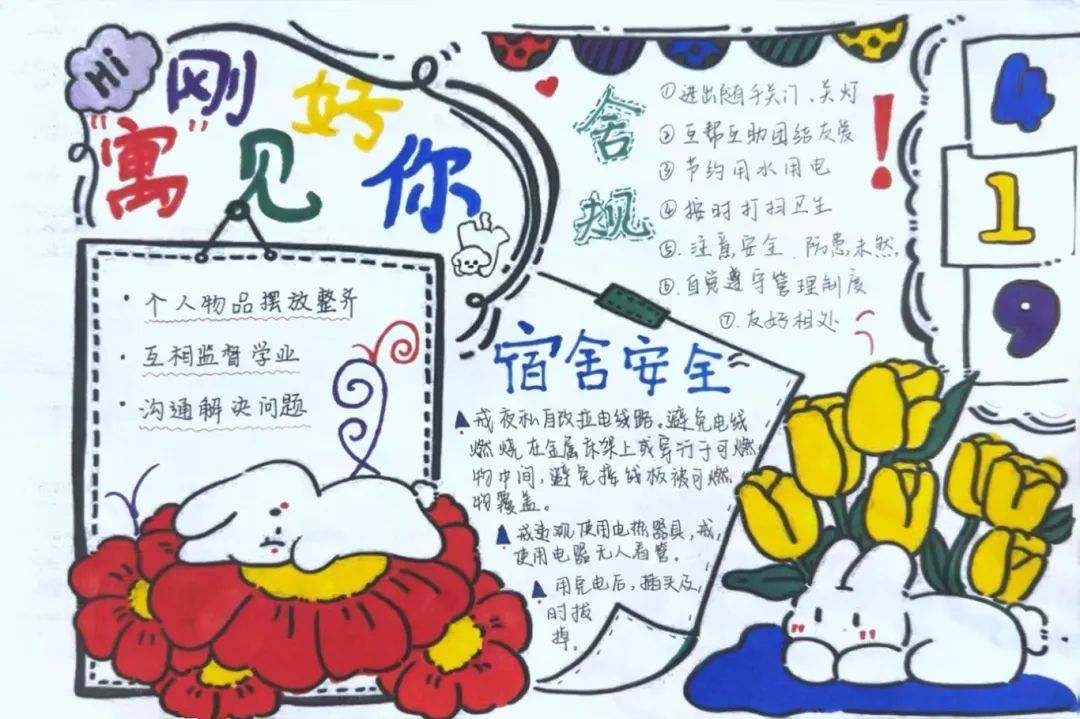 Hi
刚好
"寓"见你
• 个人物品摆放整齐
• 互相监督学业
• 沟通解决问题
舍规
①进出随手关门、关灯
②互帮互助团结友爱
③节约用水用电
④按时打扫卫生
⑤.注意安全.防患未然,
⑥.自觉遵守管理制度
⑦.友好相处
!
4
1
9
宿舍安全
▲戒夜私自改拉电线路。避免电线
燃烧在金属床架上或穿行于可燃
物中间,避免接线板被可燃
物覆盖。
▲戒违规使用电热器具,戒,
使用电器无人看管。
▲用完电后,插头及,
时拔
掉。